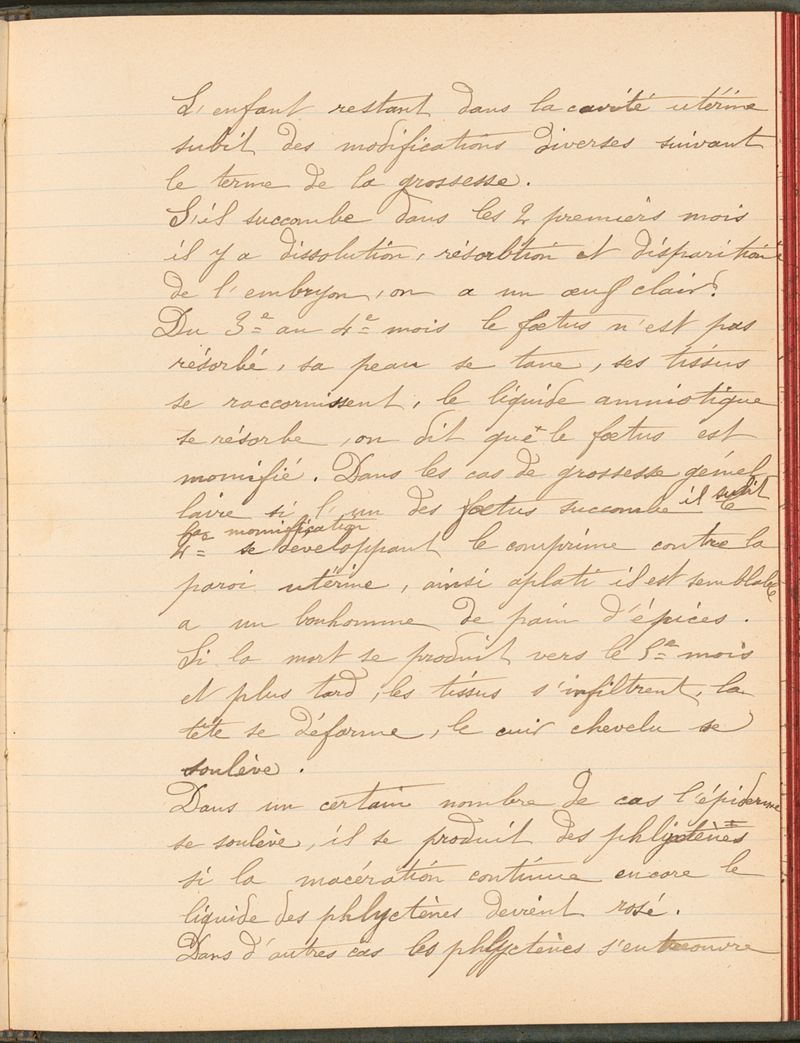 L'enfant restant dans la cavité utérine
subit des modifications diverses suivant
le terme de la grossesse.
S'il succombe dans les 2 premiers mois
il y a dissolution, résorbtion et disparition
de l'embryon, on a un œuf clair.
Du 3e au 4e mois le fœtus n'est pas
résorbé, sa peau se tane, ses tissus
se raccornissent, le liquide amniotique
se résorbe, on dit que le fœtus est
momifié. Dans les cas de grossesse gémel
laire si l'un des fœtus succombe il subit
la momification le
se développant le comprime contre la
paroi utérine, ainsi aplati il est semblable
a un bonhomme de pain d'épices.
Si la mort se produit vers le 5e mois
et plus tard, les tissus s'infiltrent, la
tête se déforme, le cuir chevelu se
soulève.
Dans un certain nombre de cas l'épiderme
se soulève, il se produit des phlyctènes
si la macération continue encore le
liquide des phlyctènes devient rosé.
Dans d'autres cas les phlyctènes s'entreouvre